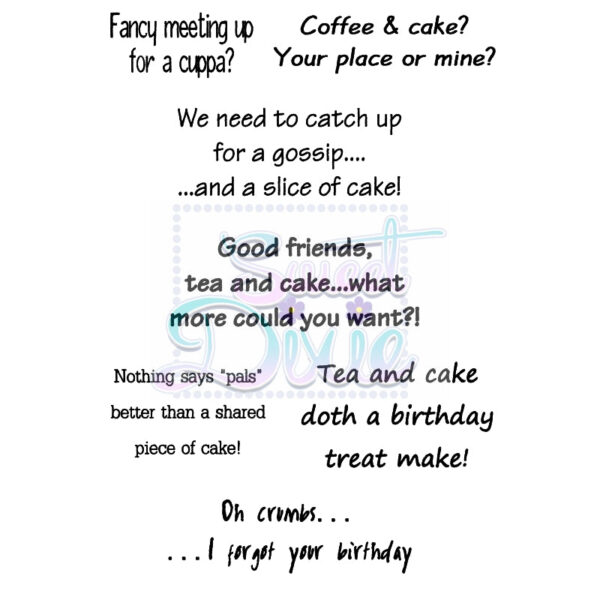 Fancy meeting up
for a cuppa?
Coffee & cake?
Your place or mine?
We need to catch up
for a gossip....
...and a slice of cake!
Good friends,
tea and cake...what
more could you want?!
Sweet
Dixie
Nothing says "pals"
better than a shared
piece of cake!
Tea and cake
doth a birthday
treat make!
Oh crumbs...
...I forgot your birthday